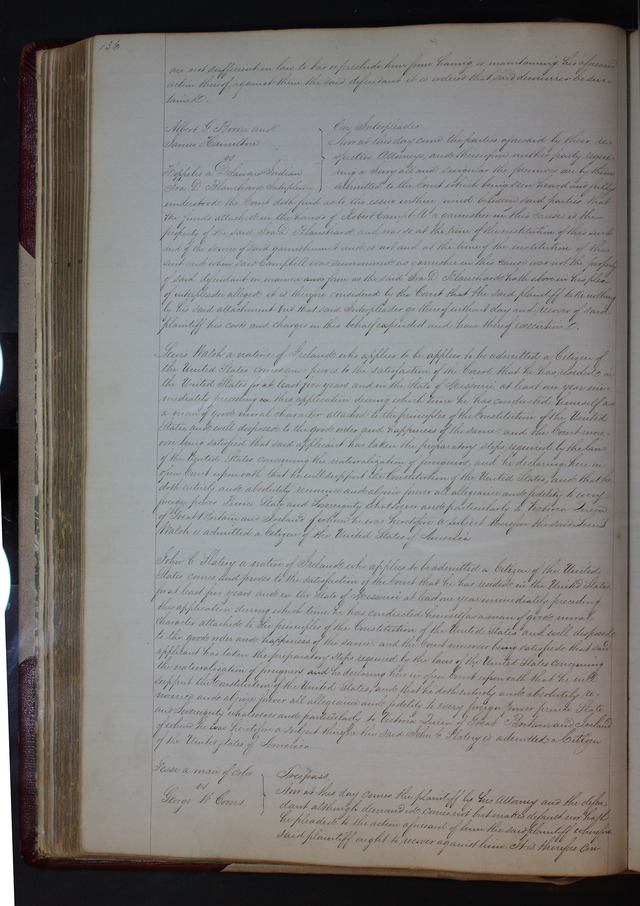 136
are not sufficient in law to bar or preclude him from having or maintaining his aforesaid
action thereof against them the said defendant it is ordered that said demurrer be sus-
tained.
Albert G Boone and
James Hamilton
vs
a Delaware Indian
Ira D. Blanchard Interpleader
On Interpleader
Now at this day come the parties aforesaid by their re-
spective Attorneys, and thereupon neither party requir-
ing a Jury all and singular the premises are by them
submitted to the Court which being seen heard and fully
understood the Court doth find as to the issue within joined between said parties that
the funds attached in the hands of Robert Campbell a garnishee in this cause is the
property of the said Ira D. Blanchard and was so at the time of the institution of this suit
and of the service of said garnishment and is not and at the time of the institution of this
suit and when said Campbell was summoned as garnishee in this cause was not the property
of said defendant in manner and form as the said Ira D. Blanchard hath above in his plea
of interpleader alleged it is therefore considered by the Court that the said plaintiff take nothing
by his said attachment but that said Interpleader go thereof without day and recover of said
plaintiff his costs and charges in this behalf expended and have thereof execution.
Walsh a native of Ireland who applies to be applies to be admitted a Citizen of
the United States comes and proves to the satisfaction of the Court that he has resided in
the United States for at least five years and in the State of Missouri at least one year im-
mediately preceding this application during which time he has conducted himself as
a man of good moral character attached to the principles of the Constitution of the United
States and well disposed to the good order and happiness of the same and the Court more-
over being satisfied that said applicant has taken the preparatory steps required by the laws
of the United States concerning the naturalization of foreigners, and he declaring here in
open Court upon oath that he will support the Constitution of the United States, and that he
doth entirely and absolutely renounce and abjure forever all allegiance and fidelity to every
foreign power Prince State and Sovereignty whatsoever and particularly to Victoria Queen
of Great Britain and Ireland of whom he was heretofore a subject therefore the said
Walsh is admitted a Citizen of the United States of America
John C Slatery a native of Ireland who applies to be admitted a Citizen of the United
States comes and proves to the satisfaction of the Court that he has resided in the United States
for at least five years and in the State of Missouri at least one year immediately preceding
this application during which time he has conducted himself as a man of good moral
character attached to the principles of the Constitution of the United States and well disposed
to the good order and happiness of the same and the Court moreover being satisfied that said
applicant has taken the preparatory steps required by the laws of the United States concerning
the naturalization of foreigners and he declaring here in open Court upon oath that he will
support the Constitution of the United States, and that he doth entirely and absolutely re-
nounce and abjure forever all allegiance and fidelity to every foreign power prince State
and Sovereignty whatsoever and particularly to Victoria Queen of Great Britain and Ireland
of whom he was heretofore a subject therefore the said John C Slatery is admitted a Citizen
of the United States of America
Jesse a man of color
vs
George W Coons
Trespass
Now at this day comes the plaintiff by his Attorney and the defen-
dant although demanded comes not but makes default nor hath
he pleaded to the action aforesaid of him the said plaintiff wherefore
said plaintiff ought to recover against him It is therefore con-